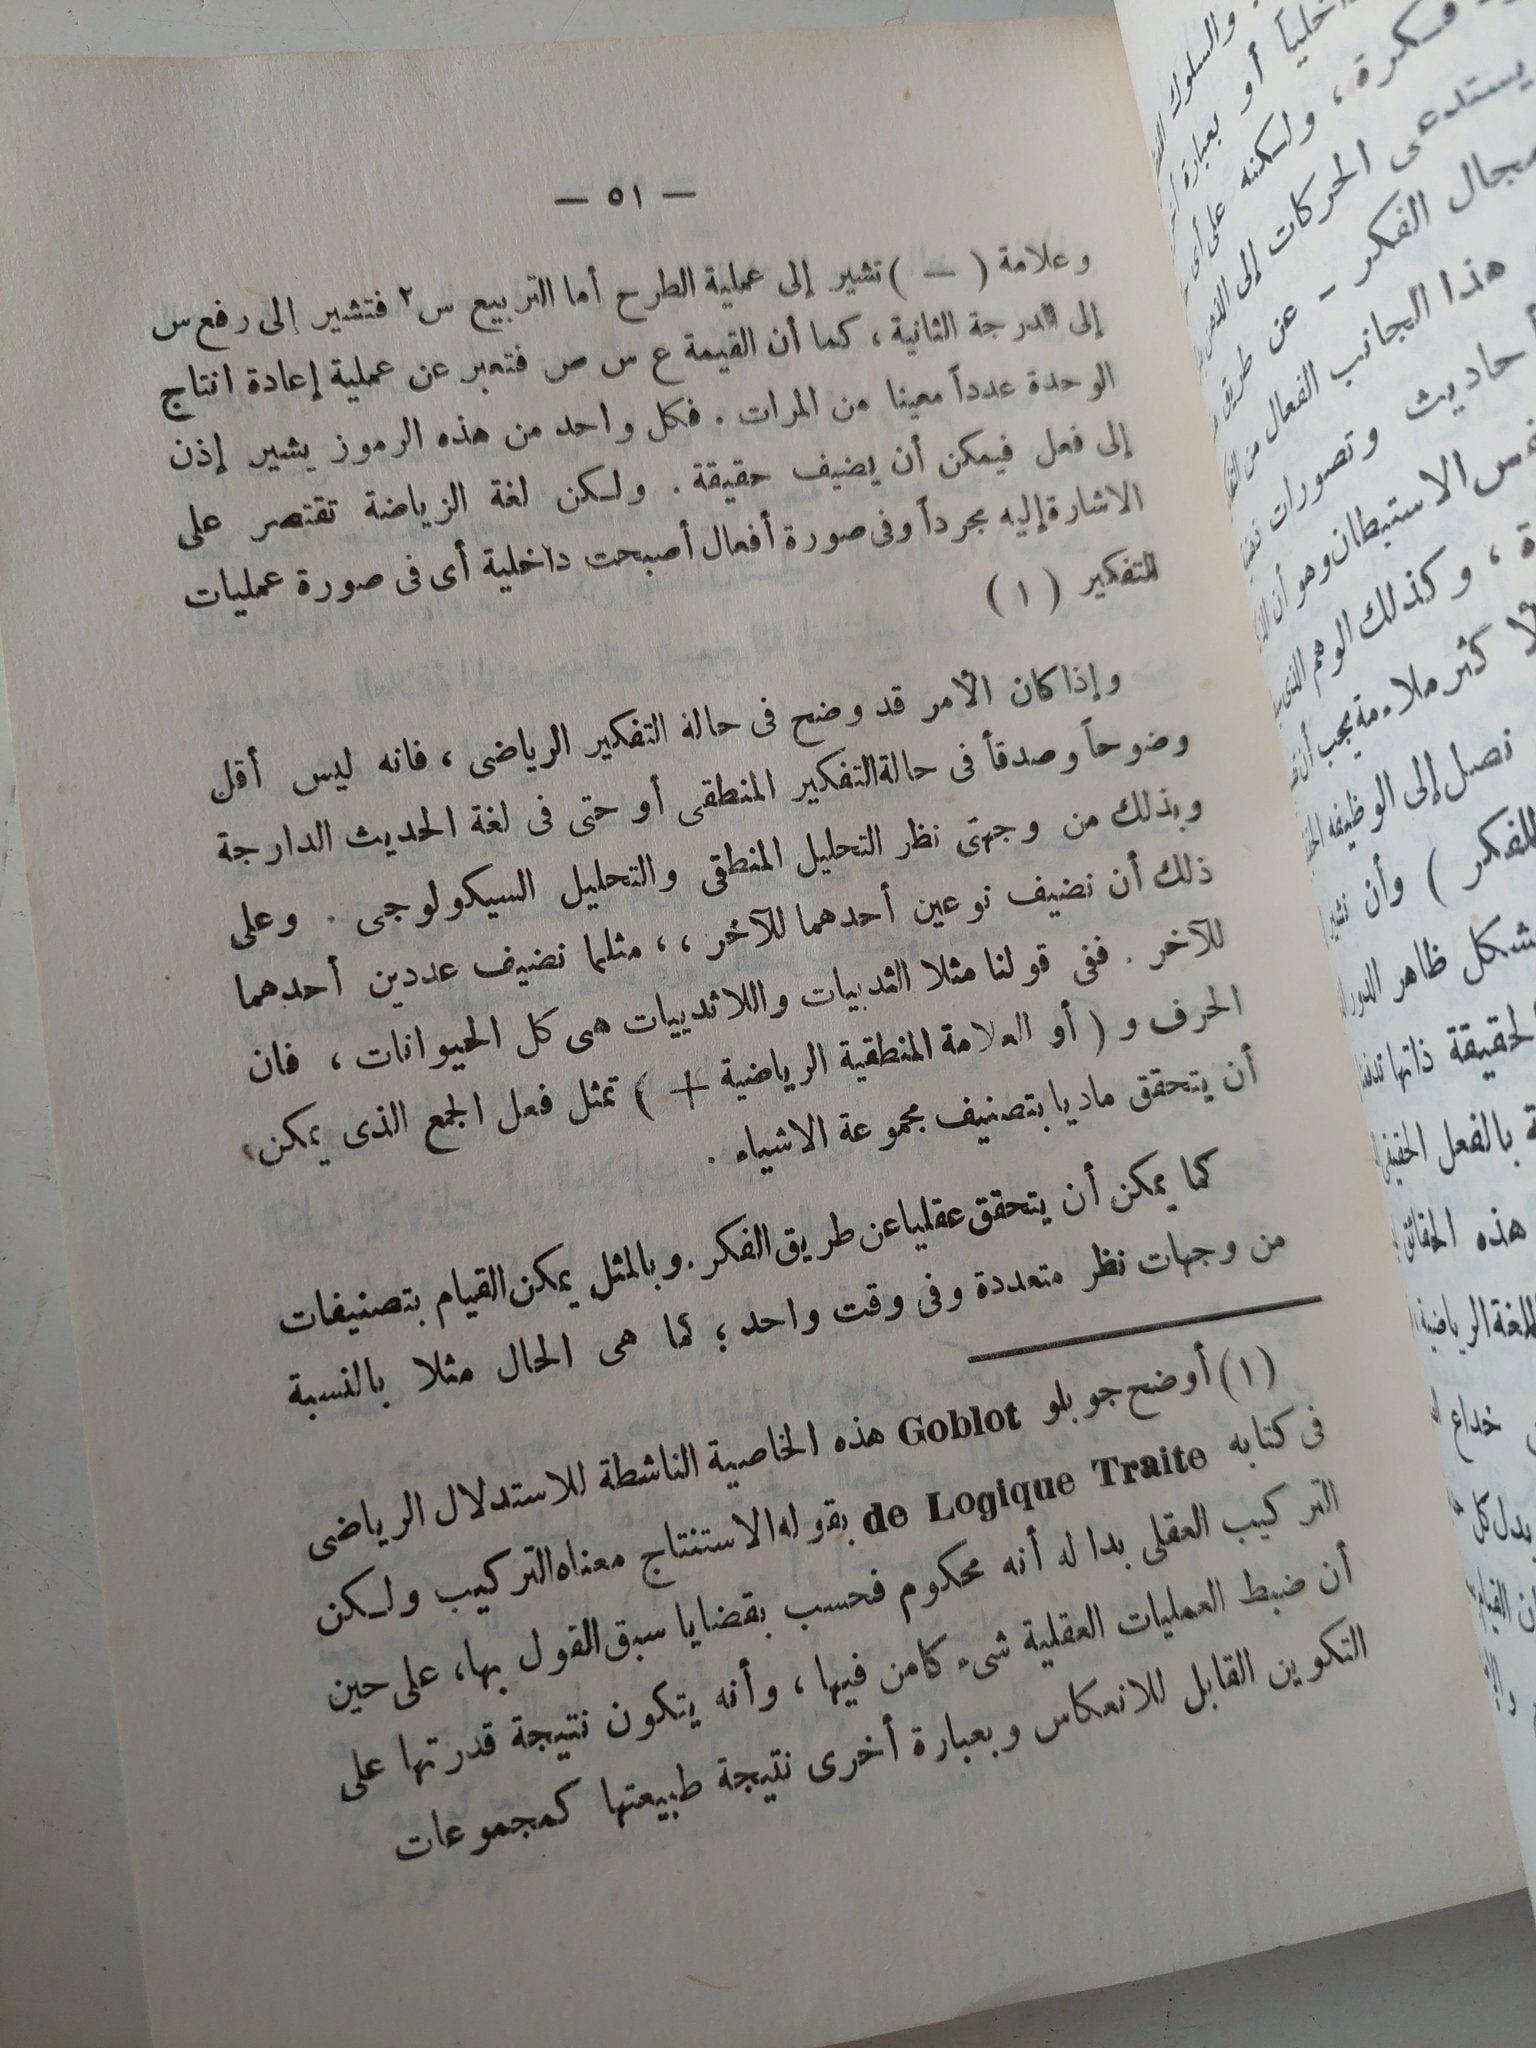 — ٥١ —
وعلامة ( — ) تشير إلى عملية الطرح أما التربيع س٢ فتشير إلى رفع س
إلى الدرجة الثانية ، كما أن القيمة ع س ص فتعبر عن عملية إعادة انتاج
الوحدة عدداً معينا من المرات . فكل واحد من هذه الرموز يشير إذن
إلى فعل فيمكن أن يضيف حقيقة . ولكن لغة الرياضة تقتصر على
الاشارة إليه مجرداً وفى صورة أفعال أصبحت داخلية أى فى صورة عمليات
للتفكير ( ١ )
وإذا كان الأمر قد وضح فى حالة التفكير الرياضى ، فانه ليس أقل
وضوحاً وصدقاً فى حالة التفكير المنطقى أو حتى فى لغة الحديث الدارجة
وبذلك من وجهتى نظر التحليل المنطقى والتحليل السيكولوجى . وعلى
ذلك أن نضيف نوعين أحدهما للآخر ، ، مثلما نضيف عددين أحدهما
للآخر . ففى قولنا مثلا الثدييات واللاثدييات هى كل الحيوانات ، فان
الحرف و ( أو العلامة المنطقية الرياضية + ) تمثل فعل الجمع الذى يمكن
أن يتحقق ماديا بتصنيف مجموعة الاشياء .
كما يمكن أن يتحقق عقليا عن طريق الفكر . وبالمثل يمكن القيام بتصنيفات
من وجهات نظر متعددة وفى وقت واحد ؛ كما هى الحال مثلا بالنسبة
(١) أوضح جوبلو Goblot هذه الخاصية الناشطة للاستدلال الرياضى
فى كتابه de Logique Traite بقوله الاستنتاج معناه التركيب ولكن
التركيب العقلى بدا له أنه محكوم فحسب بقضايا سبق القول بها ، على حين
أن ضبط العمليات العقلية شىء كامن فيها ، وأنه يتكون نتيجة قدرتها على
التكوين القابل للانعكاس وبعبارة أخرى نتيجة طبيعتها كمجموعات
والسلوك
أو بعبارة
فكرة ، ولكنه على أى
يستدعى الحركات إلى
مجال الفكر - عن طريق
هذا الجانب الفعال من
وتصورات
الاستبطان وهو أن
، وكذلك الوهم الذى
ملاءمة يجب أن
نصل إلى الوظيفة
) وأن نشير
ظاهر
ذاتها
بالفعل
هذه الحقائق
خداع